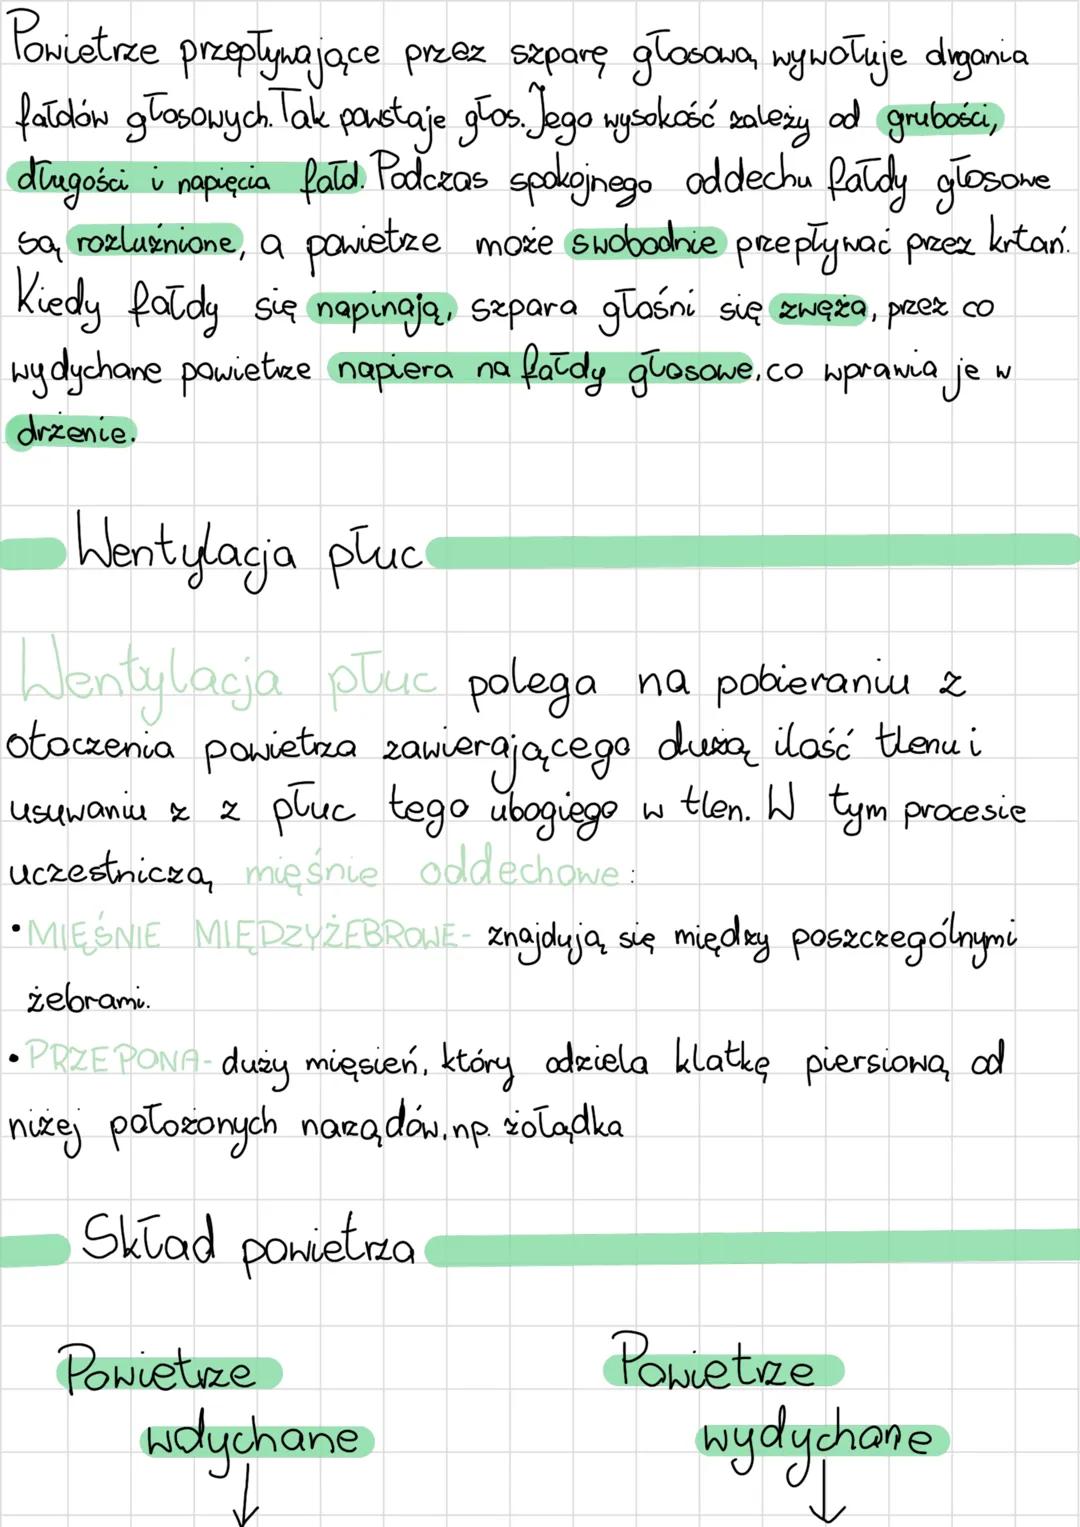 Powietrze przepływające przez szparę głosową wywołuje drgania
fałdów głosowych. Tak powstaje głos. Jego wysokość zależy od grubości,
długości i napięcia fałd. Podczas spokojnego oddechu fałdy głosowe
są rozluźnione, a powietrze może swobodnie przepływać przez krtań.
Kiedy fałdy się napinają, szpara głośni się zwęża, przez co
wydychane powietrze napiera na fałdy głosowe, co wprawia je w
drżenie.
Wentylacja płuc
Wentylacja płuc polega na pobieraniu z
otoczenia powietrza zawierającego dużą ilość tlenu i
usuwaniu z z płuc tego ubogiego w tlen. W tym procesie
uczestniczą mięśnie oddechowe:
• MIĘŚNIE MIĘDZYŻEBROWE- znajdują się między poszczególnymi
żebrami.
• PRZEPONA- duży mięsień, który odziela klatkę piersiową od
niżej położonych narządów, np. żołądka
Skład powietrza
Powietrze Powietrze
wdychane wydychane